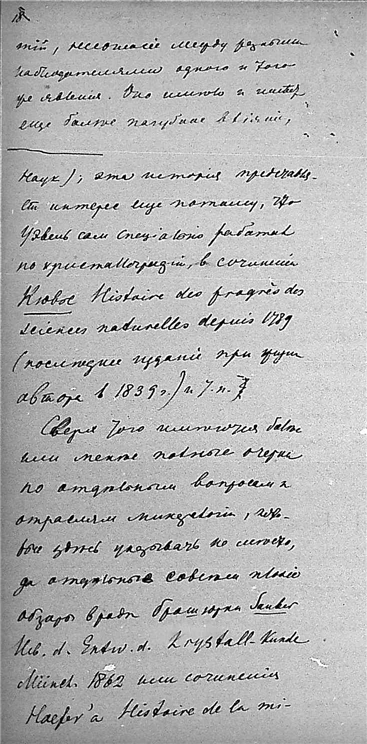 18
тiй, несогласiе между разными
наблюдателями одного и того
же явленiя. Оно имело и имеетъ
еще более пагубное влiянiе,
Наук); эта исторiя представля-
ет интерес еще потому, что
Уэвель сам спецiально работал
по кристаллографiи, в сочиненiи
Кювье Histoire des progrès des
sciences naturelles depuis 1789
(последнее изданiе при жизни
автора в 1839 г.) и т. п.
Сверх того имеются более
или менее полные очерки
по отдельным вопросам и
отраслям минералогiи,
вые здесь указывать не место,
да отдельные совсем
обзоры вроде брошюрки
Ueb. d. Entw. d. Krystall-Kunde
Münch. 1862 или сочиненiя
Hoefer'а Histoire de la mi-